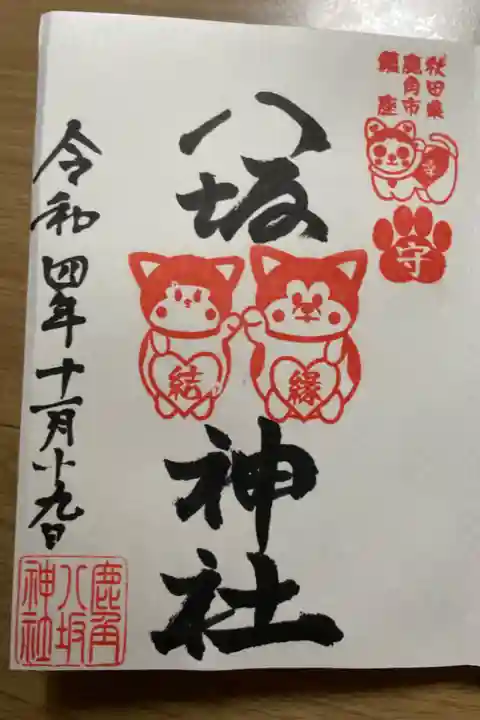 秋田県
鹿角市
幸
守
八坂
結
縁
神社
令和四年十一月十九日
鹿角
八坂
神社